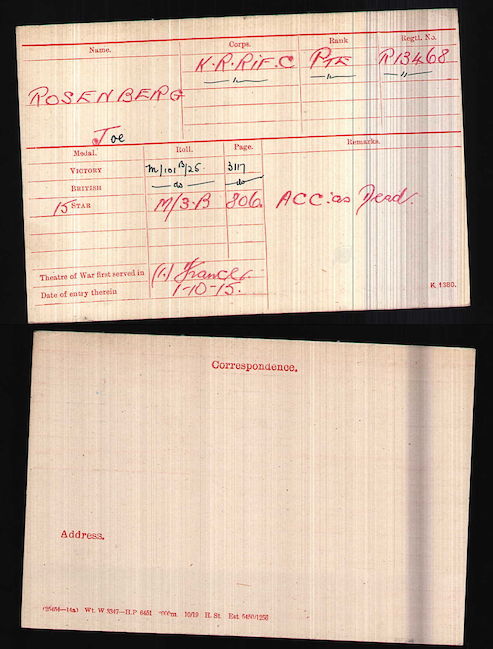 Name. Corps. Rank Regtl. No.
K.R.RIF.C PTE R13468
" " "
ROSENBERG
Joe
Medal. Roll. Page. Remarks.
VICTORY M/101 B/25 3117
BRITISH do do
15 STAR M/3.B 806. ACC: as Dead.
Theatre of War first served in (1) France
Date of entry therein 1-10-15.
K. 1380.
Correspondence.
Address.
Wt. W 5347—H.P 6451 10/19 H. St.